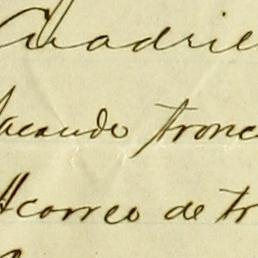 Cuadril
sacando tronc
Acarreo de tr